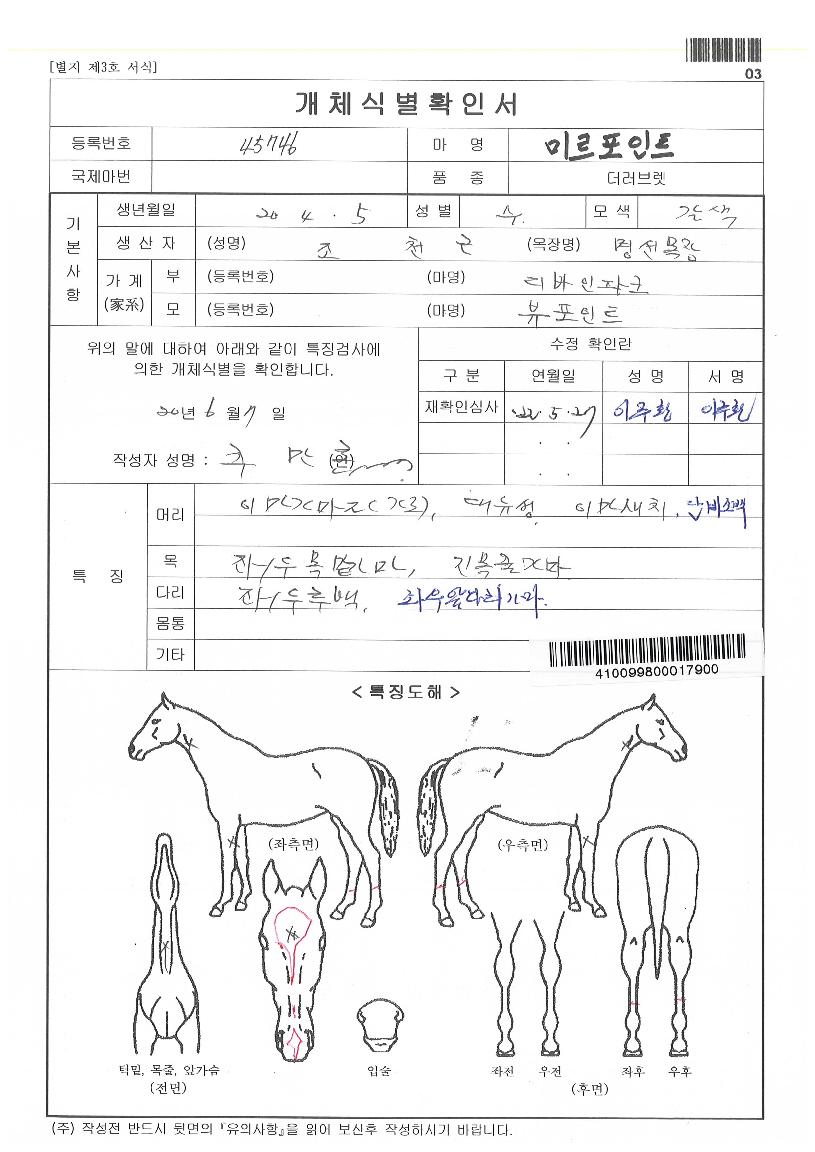 [별지 제3호 서식]
03
개체식별확인서
등록번호 45746 마 명 미르포인트
국제마번 품 종 더러브렛
기본사항
생년월일 20 4 . 5 성 별 수 모 색 갈색
생 산 자 (성명) 조 천 군 (목장명) 명선목장
가 계 (家系) 부 (등록번호) (마명) 디바인파크
모 (등록번호) (마명) 뷰포인트
위의 말에 대하여 아래와 같이 특징검사에
의한 개체식별을 확인합니다.
20년 6 월 7 일
작성자 성명 :
수정 확인란
구 분 연월일 성 명 서 명
재확인심사 22.5.27 이주환 이주환
. .
. .
특 징
머리 대유성, 단비소백
목
다리 좌우후백,
몸통
기타
410099800017900
< 특징도해 >
(좌측면) (우측면)
턱밑, 목줄, 앞가슴
(전면)
입술
좌전 우전 좌후 우후
(후면)
(주) 작성전 반드시 뒷면의 『유의사항』을 읽어 보신후 작성하시기 바랍니다.